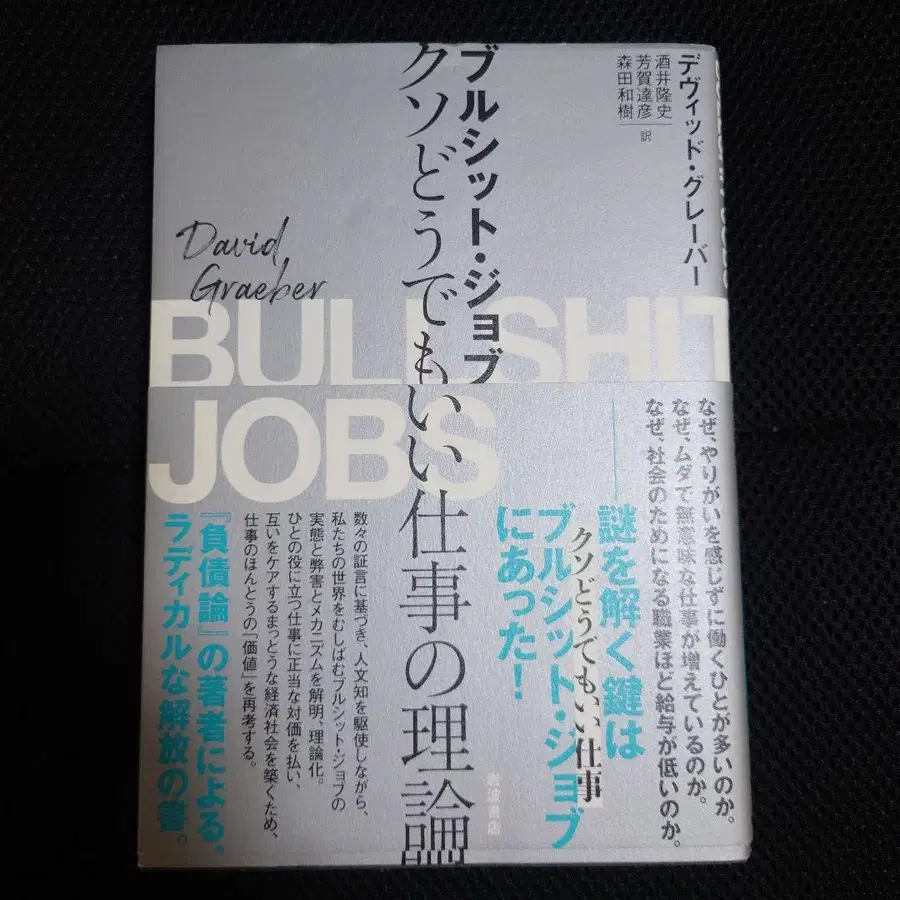 デヴィッド・グレーバー
酒井隆史
芳賀達彦
森田和樹
訳
ブルシット・ジョブ
クソどうでもいい仕事の理論
David
Graeber
BULLSHIT
JOBS
なぜ、やりがいを感じずに働くひとが多いのか。
なぜ、ムダで無意味な仕事が増えているのか。
なぜ、社会のためになる職業ほど給与が低いのか。
――謎を解く鍵は
クソどうでもいい仕事
ブルシット・ジョブ
にあった!
岩波書店
数々の証言に基づき、人文知を駆使しながら、
私たちの世界をむしばむブルシット・ジョブの
実態と弊害とメカニズムを解明、理論化。
ひとの役に立つ仕事に正当な対価を払い、
互いをケアするまっとうな経済社会を築くため、
仕事のほんとうの「価値」を再考する。
『負債論』の著者による、
ラディカルな解放の書。